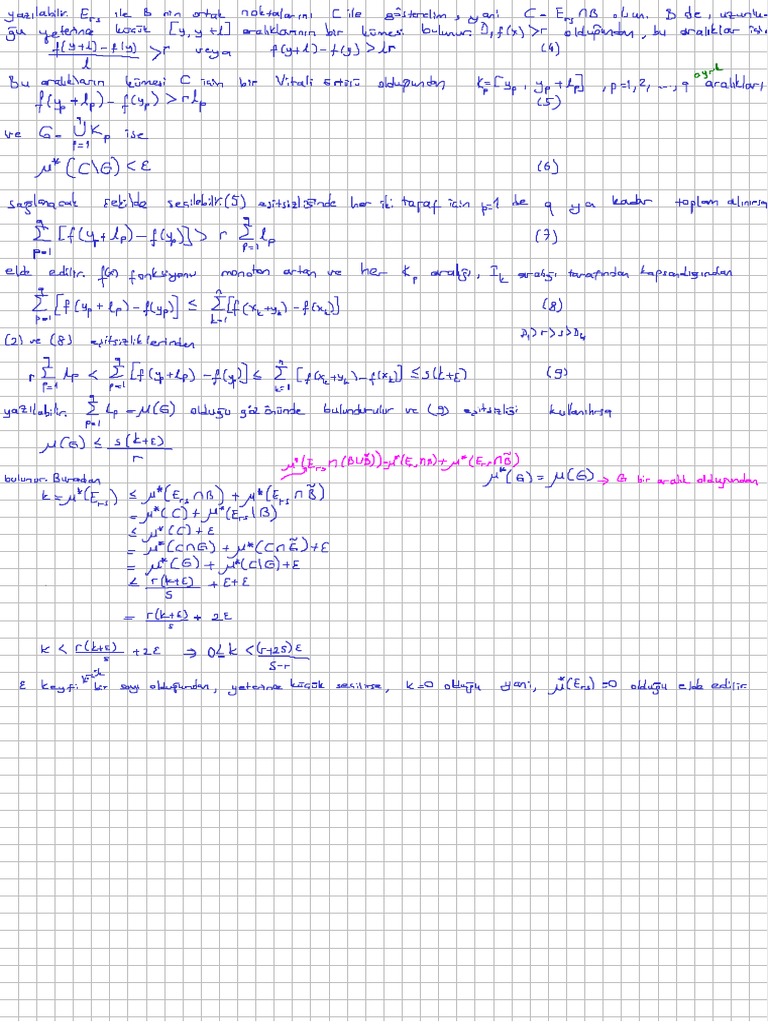 yazılabilir. E_rs ile B nin ortak noktalarını C ile gösterelim, yani C = E_rs ∩ B olsun. B de, uzunlu-
ğu yeterince küçük [y, y+l] aralıklarının bir kümesi bulunur. D₁f(x) > r olduğundan, bu aralıklar için
(f(y+l) - f(y))/l > r veya f(y+l) - f(y) > lr (4)
Bu aralıkların kümesi C için bir Vitali örtüsü olduğundan K_p = [y_p, y_p + l_p], p=1,2,..., q ayrık aralıkları
f(y_p + l_p) - f(y_p) > r l_p (5)
ve G = ⋃_{p=1}^{q} K_p ise
μ*(C\G) < ε (6)
sağlanacak şekilde seçilebilir. (5) eşitsizliğinde her iki taraf için p=1 de q ya kadar toplam alınırsa
∑_{p=1}^{q} [f(y_p + l_p) - f(y_p)] > r ∑_{p=1}^{q} l_p (7)
elde edilir. f(x) fonksiyonu monoton artan ve her K_p aralığı, I_k aralığı tarafından kapsandığından
∑_{p=1}^{q} [f(y_p + l_p) - f(y_p)] ≤ ∑_{k=1}^{n} [f(x_k + y_k) - f(x_k)] (8)
D₁ > r > s > D₄
(2) ve (8) eşitsizliklerinden
r ∑_{p=1}^{q} l_p < ∑_{p=1}^{q} [f(y_p + l_p) - f(y_p)] ≤ ∑_{k=1}^{n} [f(x_k + y_k) - f(x_k)] ≤ s(k+ε) (9)
yazılabilir. ∑_{p=1}^{q} l_p = μ(G) olduğu göz önünde bulundurulur ve (9) eşitsizliği kullanılırsa
μ(G) ≤ s(k+ε)/r
μ*(E_rs ∩ (B∪B̃)) = μ*(E_rs ∩ B) + μ*(E_rs ∩ B̃)
bulunur. Buradan μ*(G) = μ(G) → G bir aralık olduğundan
k = μ*(E_rs) ≤ μ*(E_rs ∩ B) + μ*(E_rs ∩ B̃)
= μ*(C) + μ*(E_rs \ B)
≤ μ*(C) + ε
= μ*(C∩G) + μ*(C∩G̃) + ε
= μ*(G) + μ*(C\G) + ε
≤ r(k+ε)/s + ε + ε
= r(k+ε)/s + 2ε
k < r(k+ε)/s + 2ε → 0 ≤ k < (r+2s)ε/(s-r)
ε keyfi küçük bir sayı olduğundan, yeterince küçük seçilirse, k=0 olduğu yani, μ*(E_rs) = 0 olduğu elde edilir.